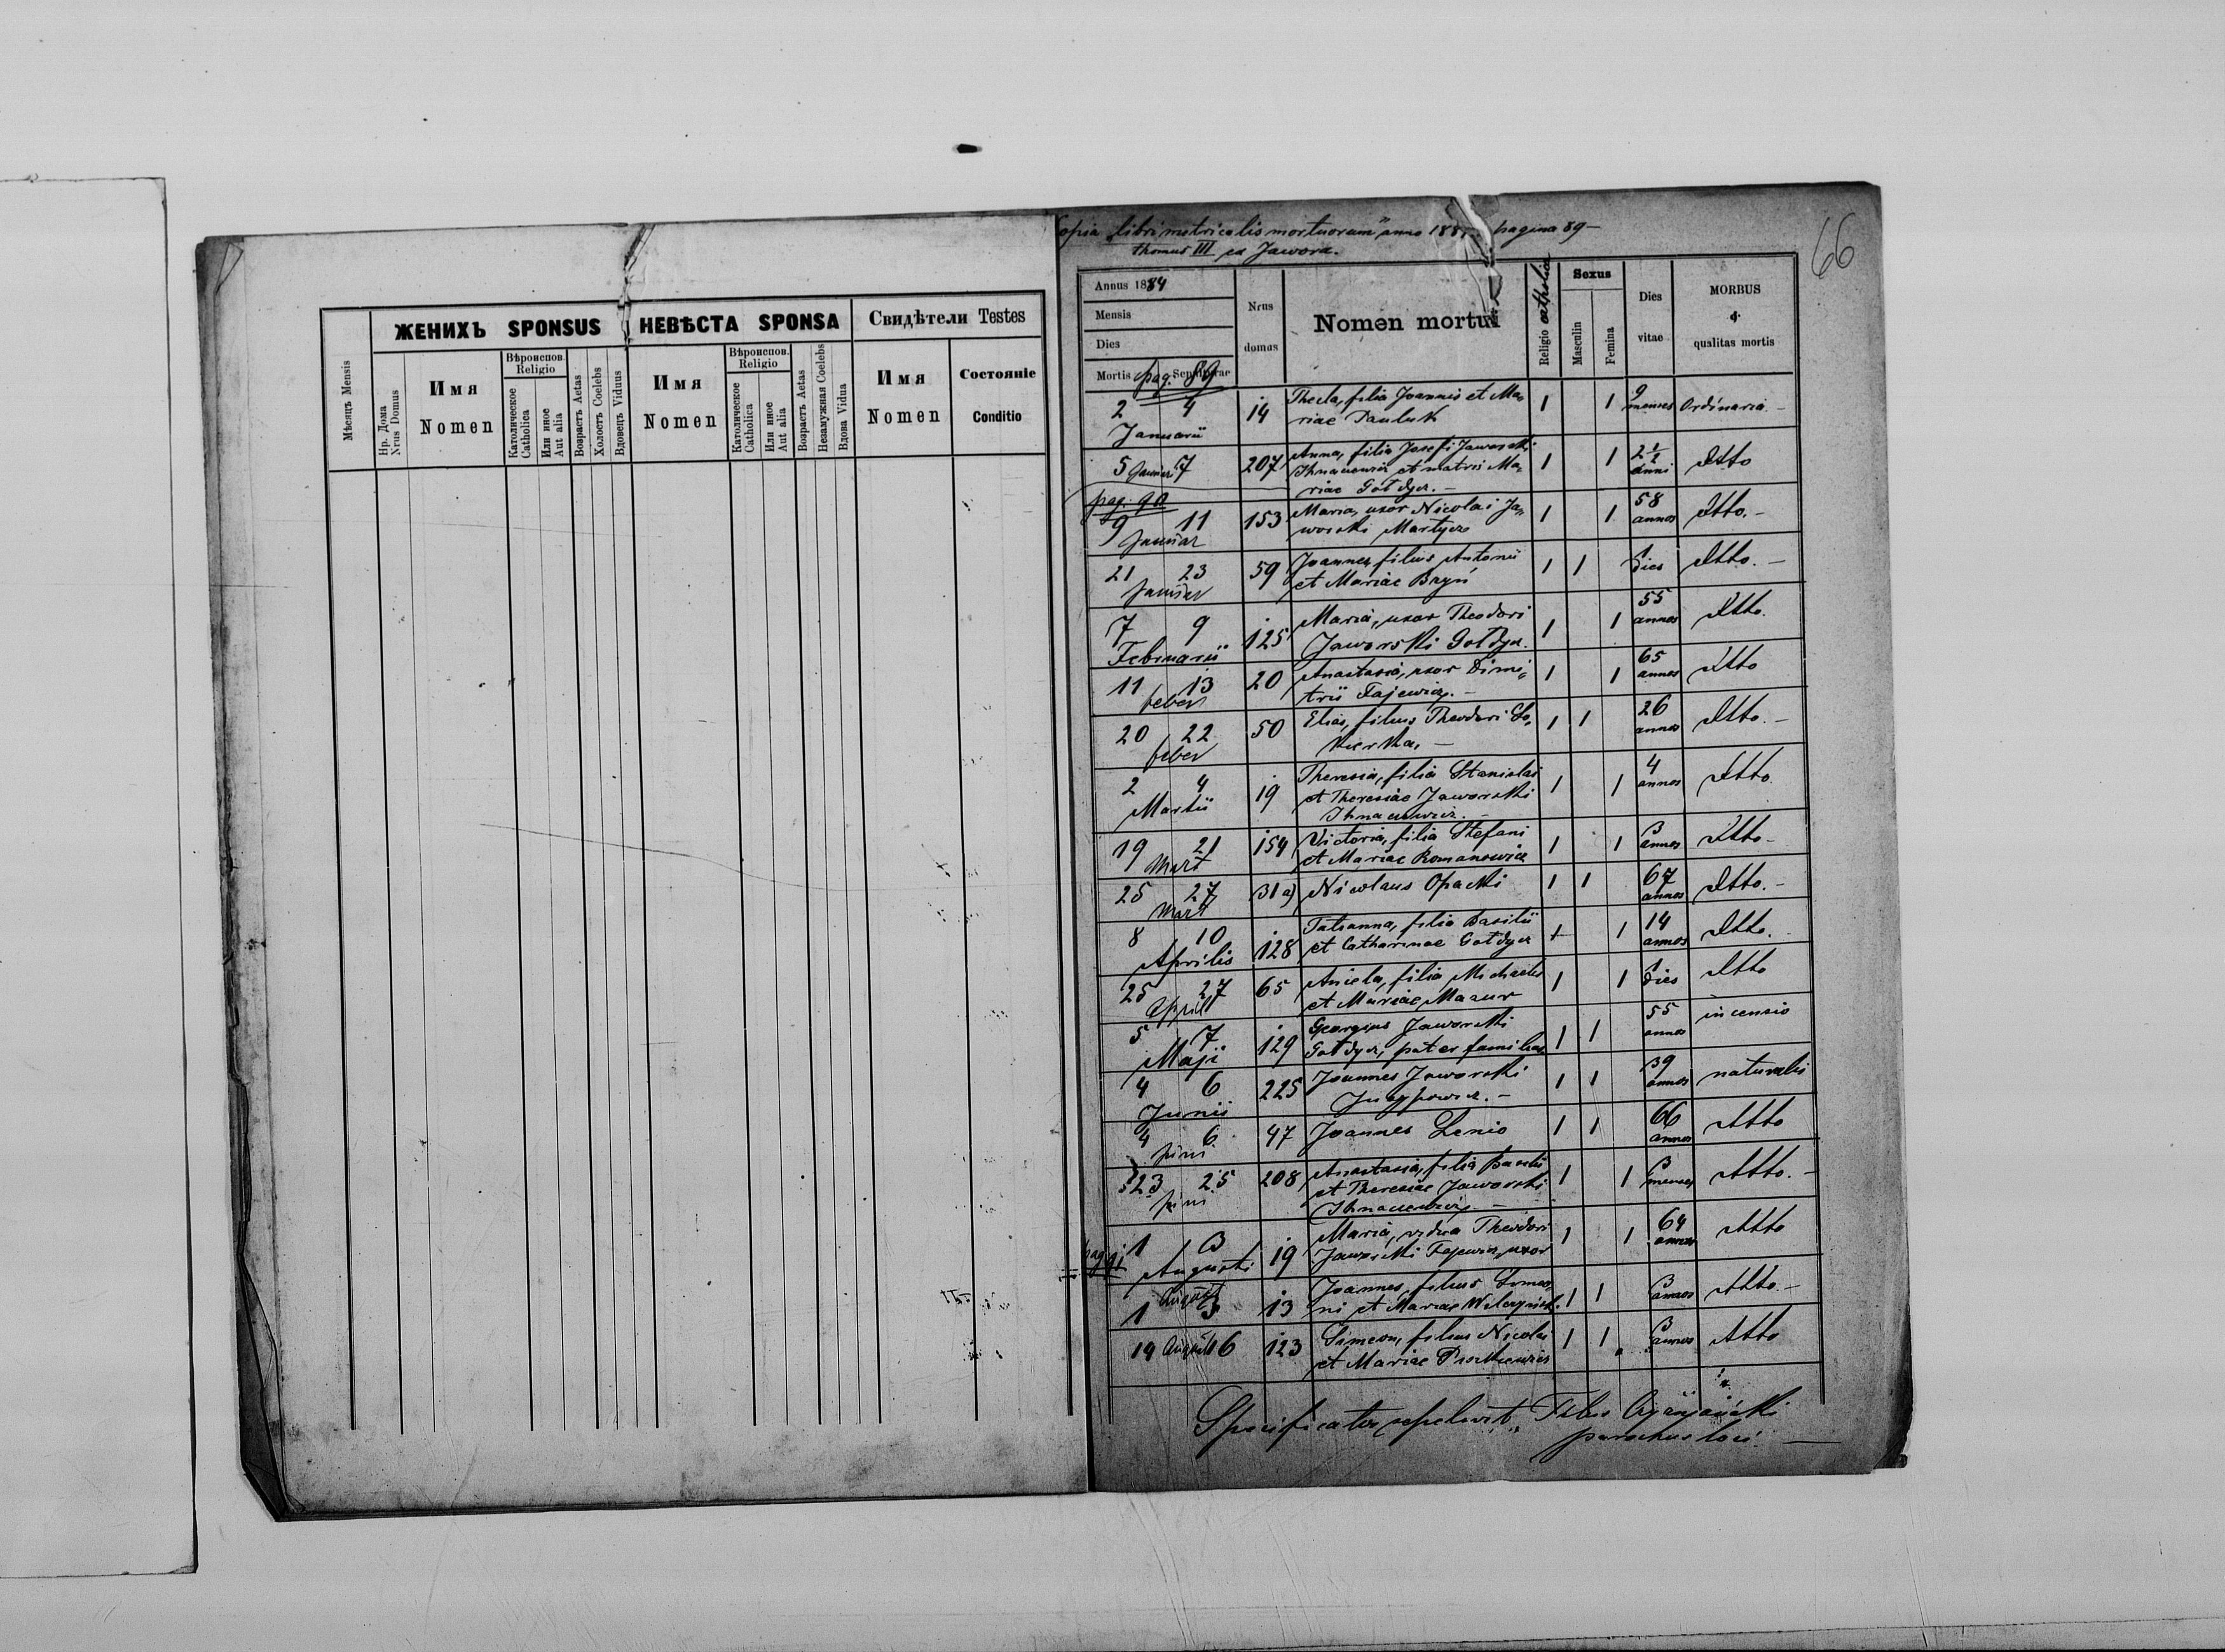 ЖЕНИХЪ SPONSUS
НЕВѢСТА SPONSA
Свидѣтели Testes
Мѣсяцъ Mensis
Нр. Дома
Nrus Domus
Имя
Nomen
Вѣроиспов.
Religio
Католическое
Catholica
Или иное
Aut alia
Возрастъ Aetas
Холостъ Coelebs
Вдовецъ Viduus
Имя
Nomen
Вѣроиспов.
Religio
Католическое
Catholica
Или иное
Aut alia
Возрастъ Aetas
Незамужная Coelebs
Вдова Vidua
Имя
Nomen
Состояніе
Conditio
66
opia libri metricalis mortuorum anno pagina 89 -
thomus III ex Jawora.
Annus 1884
Mensis
Dies
Mortis Sepulturae
pag. 89
Nrus
domus
Nomen mortui
Religio catholica
Sexus
Masculin
Femina
Dies
vitae
MORBUS
et
qualitas mortis
2 4 14 Thecla, filia Joannis et Ma- 1 1 9 menses Ordinaria. -
Januarii riae Pauluk
5 Januar 7 207 Anna, filia Josefi Jaworski 1 1 2 1/2 anni Dtto
Ihnacewicz et matris Ma-
riae Gołdycz. -
pag. 90
9 11 153 Maria, uxor Nicolai Ja- 1 1 58 annos Dtto. -
Januar worski Martycz
21 23 59 Joannes, filius Antonii 1 1 1 dies Dtto. -
Januar et Mariae Bryń
7 9 125 Maria, uxor Theodori 1 1 55 annos Dtto.
Februarii Jaworski Gołdycz.
11 13 20 Anastasia, uxor Dimi- 1 1 65 annos Dtto
feber trii Fajewicz. -
20 22 50 Elias, filius Theodori 1 1 26 annos Dtto. -
feber
2 4 19 Theresia, filia Stanislai 1 1 4 annos Dtto.
Martii et Theresiae Jaworski
Ihnacewicz. -
19 21 154 Victoria, filia Stefani 1 1 3 annos Dtto -
Mart et Mariae Romanowicz
25 27 31 a) Nicolaus Opacki 1 1 67 annos Dtto. -
Mart
8 10 128 Tatianna, filia Basilii 1 1 14 annos Dtto.
Aprilis et Catharinae Gołdycz
25 27 65 Aniela, filia Michaelis 1 1 1 dies Dtto
April et Mariae Mazur
5 7 129 Georgius Jaworski 1 1 55 annos incensio
Maji Gołdycz, pater familias
4 6 225 Joannes Jaworski 1 1 39 annos naturalis
Junii Juzypowicz. -
4 6 47 Joannes Lenio 1 1 66 annos Dtto
juni
23 25 208 Anastasia, filia Basilii 1 1 3 menses Dtto. -
juni et Theresiae Jaworski
Ihnacewicz. -
pag. 91
1 3 19 Maria, vidua Theodori 1 1 64 annos Dtto
Augusti Jaworski Fajewicz, uxor
1 August 3 13 Joannes, filius 1 1 3 annos Dtto. -
ni et Mariae
14 August 16 123 Simeon, filius Nicolai 1 1 3 annos Dtto
et Mariae
sepelivit
parochus loci. -